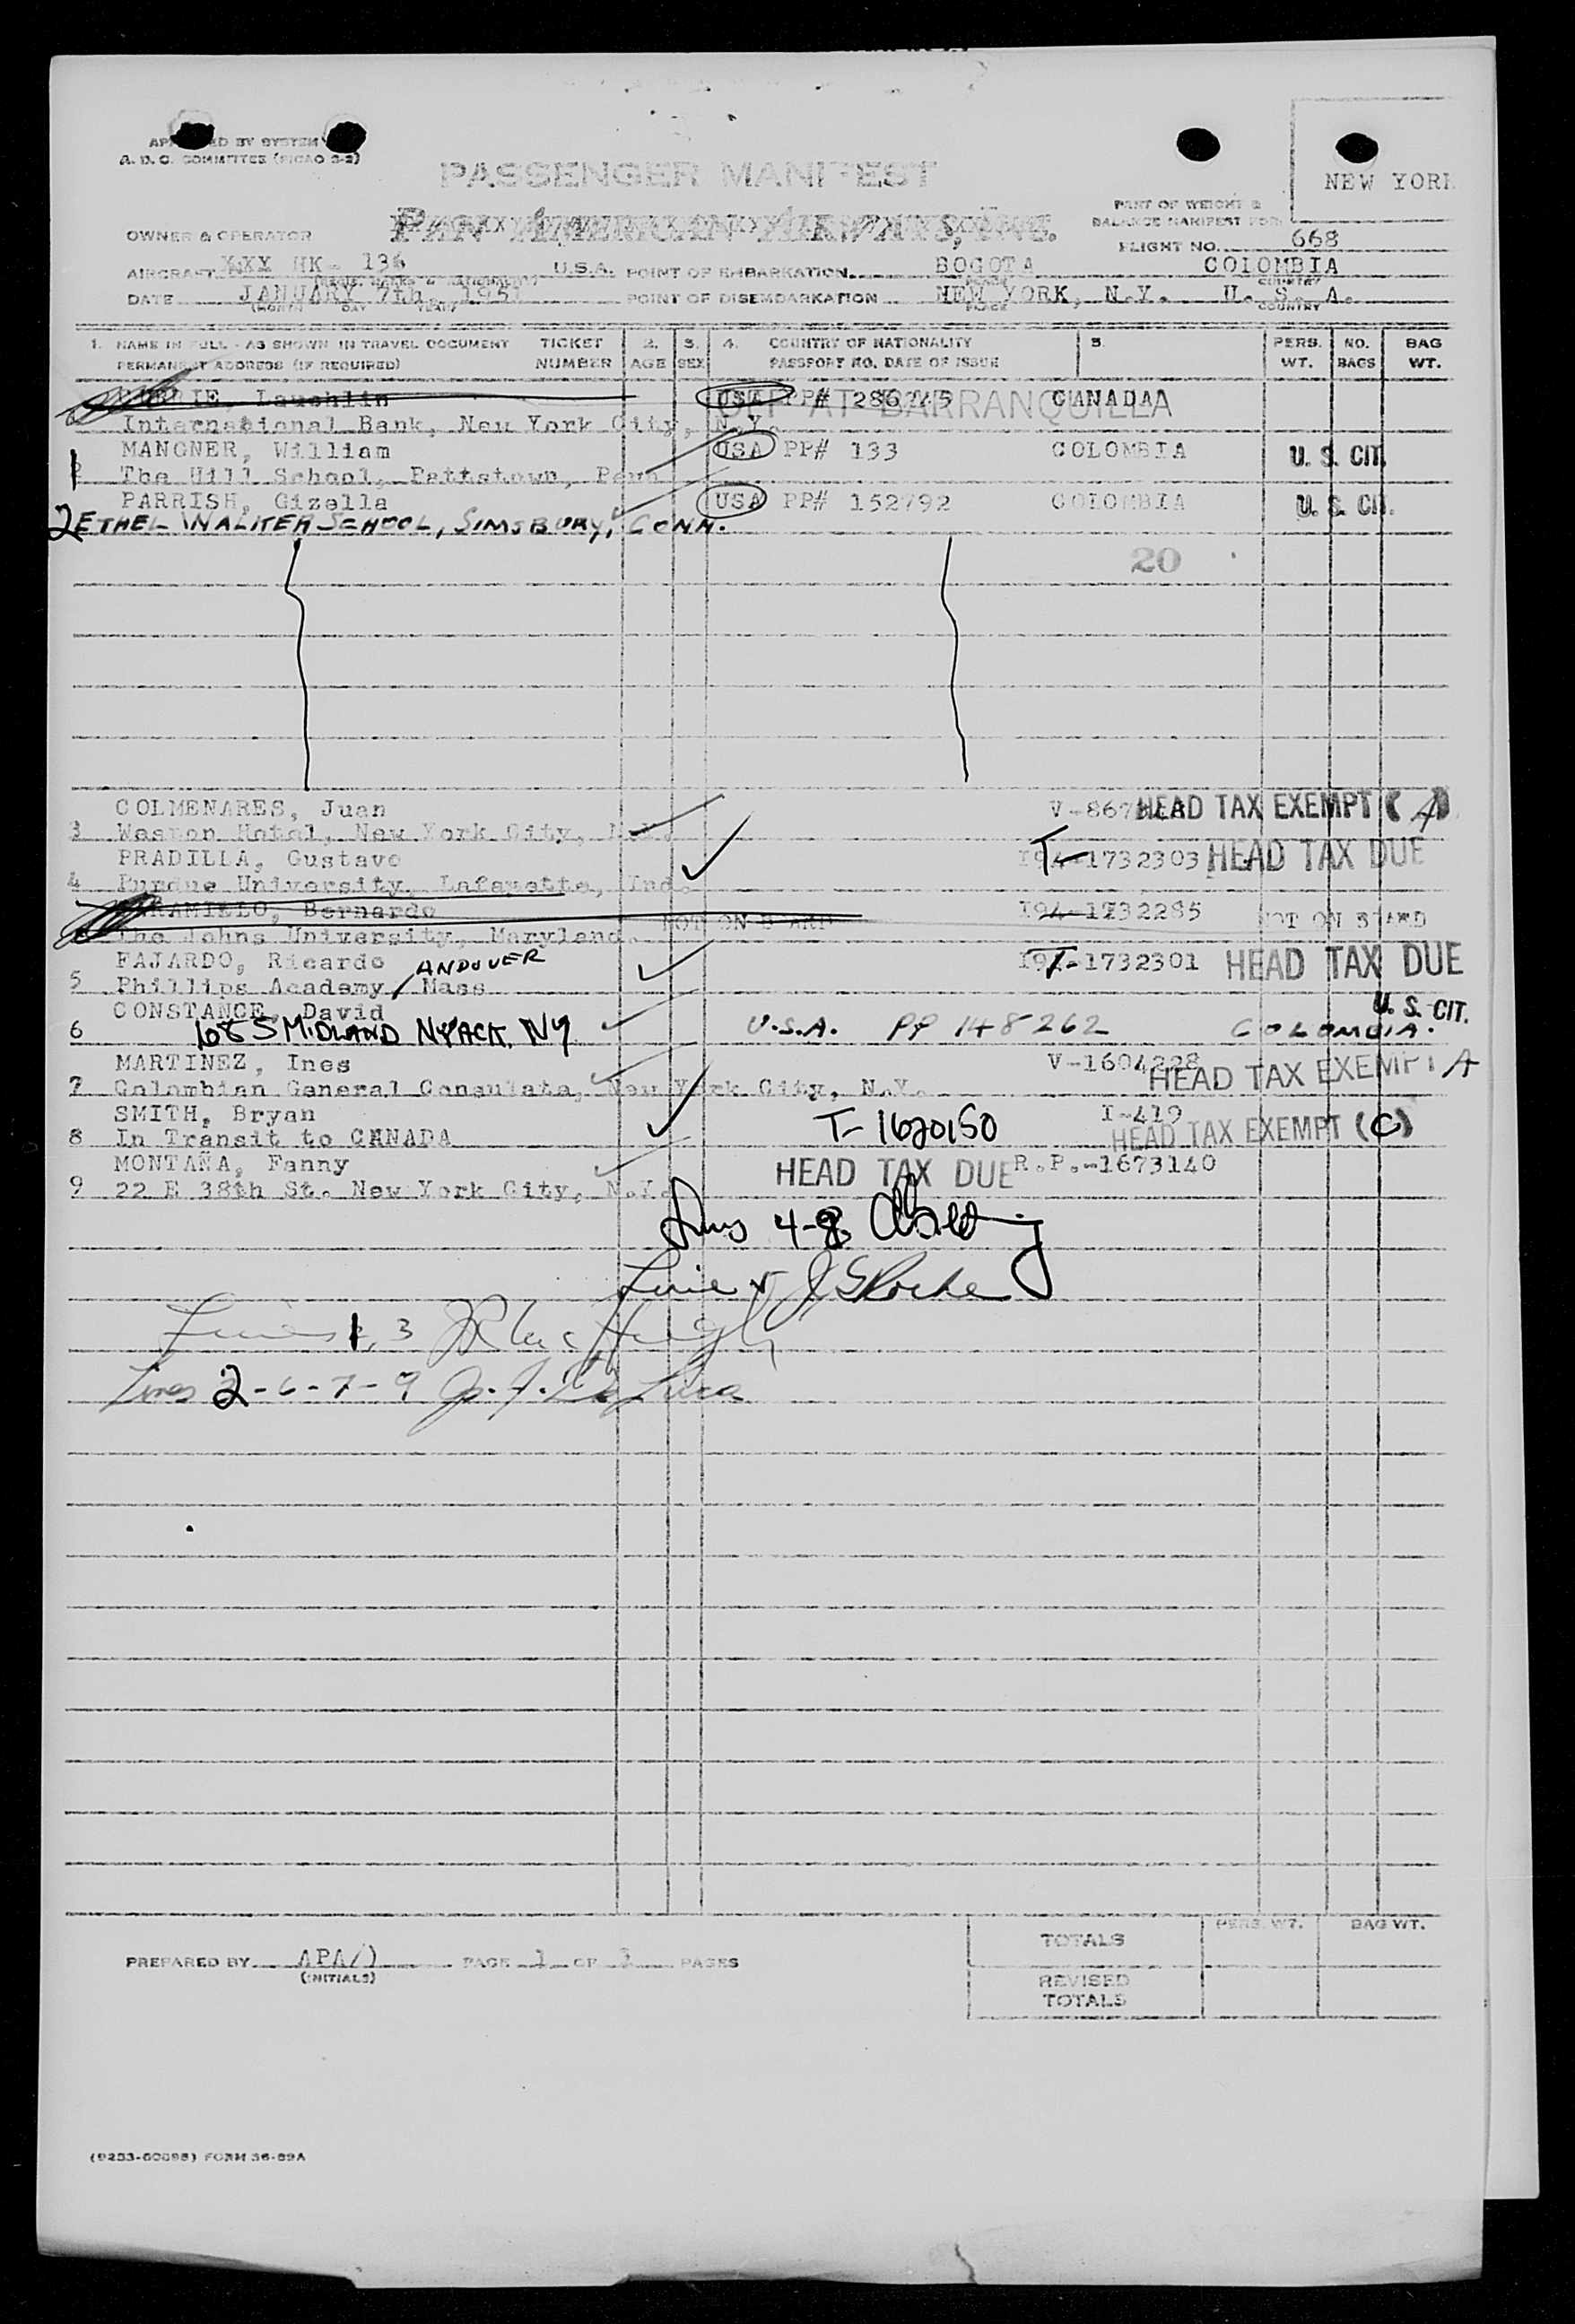 APPROVED BY SYSTEM
A. D. C. COMMITTEE (PICAO 2-2)
PASSENGER MANIFEST
NEW YORK
PART OF WEIGHT &
BALANCE MANIFEST FOR
OWNER & OPERATOR PAN AMERICAN AIRWAYS, INC.
FLIGHT NO. 668
AIRCRAFT XXX HK- 136 U.S.A. POINT OF EMBARKATION BOGOTA COLOMBIA
PLACE COUNTRY
DATE JANUARY 7th, 1951 POINT OF DISEMBARKATION NEW YORK, N.Y. U. S. A.
(MONTH DAY YEAR) PLACE COUNTRY
1. NAME IN FULL - AS SHOWN IN TRAVEL DOCUMENT TICKET 2. 3. 4. COUNTRY OF NATIONALITY 5. PERS. NO. BAG
PERMANENT ADDRESS (IF REQUIRED) NUMBER AGE SEX PASSPORT NO. DATE OF ISSUE WT. BAGS WT.
Lauchlin USA PP# 286745 CANADA
OFF AT BARRANQUILLA
International Bank, New York City, N.Y.
MANGNER, William USA PP# 133 COLOMBIA U. S. CIT.
1 The Hill School, Pottstown, Penn
PARRISH, Gizella USA PP# 152792 COLOMBIA U. S. CIT.
2 ETHEL WALKER SCHOOL, SIMSBURY, CONN.
20
COLMENARES, Juan HEAD TAX EXEMPT (A)
3 Weston Hotel, New York City, N.Y.
PRADILLA, Gustavo T-1732303 HEAD TAX DUE
4 Purdue University, Lafayette, Ind.
JARAMILLO, Bernardo NOT ON BOARD I94-1732285 NOT ON BOARD
The Johns University, Maryland.
FAJARDO, Ricardo ANDOVER T-1732301 HEAD TAX DUE
5 Phillips Academy, Mass
CONSTANCE, David U. S. CIT.
6 108 S MIDLAND NYACK. NY U.S.A. PP 148262 COLOMBIA.
MARTINEZ, Ines V-1604228 HEAD TAX EXEMPT A
7 Colombian General Consulate, New York City, N.Y.
SMITH, Bryan T-1620150 I-419
8 In Transit to CANADA HEAD TAX EXEMPT (C)
MONTAÑA, Fanny HEAD TAX DUE R.P.-1673140
9 22 E 38th St. New York City, N.Y.
Lines 1, 3
Lines 2-6-7-9
PERS. WT. BAG WT.
TOTALS
PREPARED BY PAGE 1 OF 3 PAGES
(INITIALS)
REVISED
TOTALS
(9233-00098) FORM 36-89A